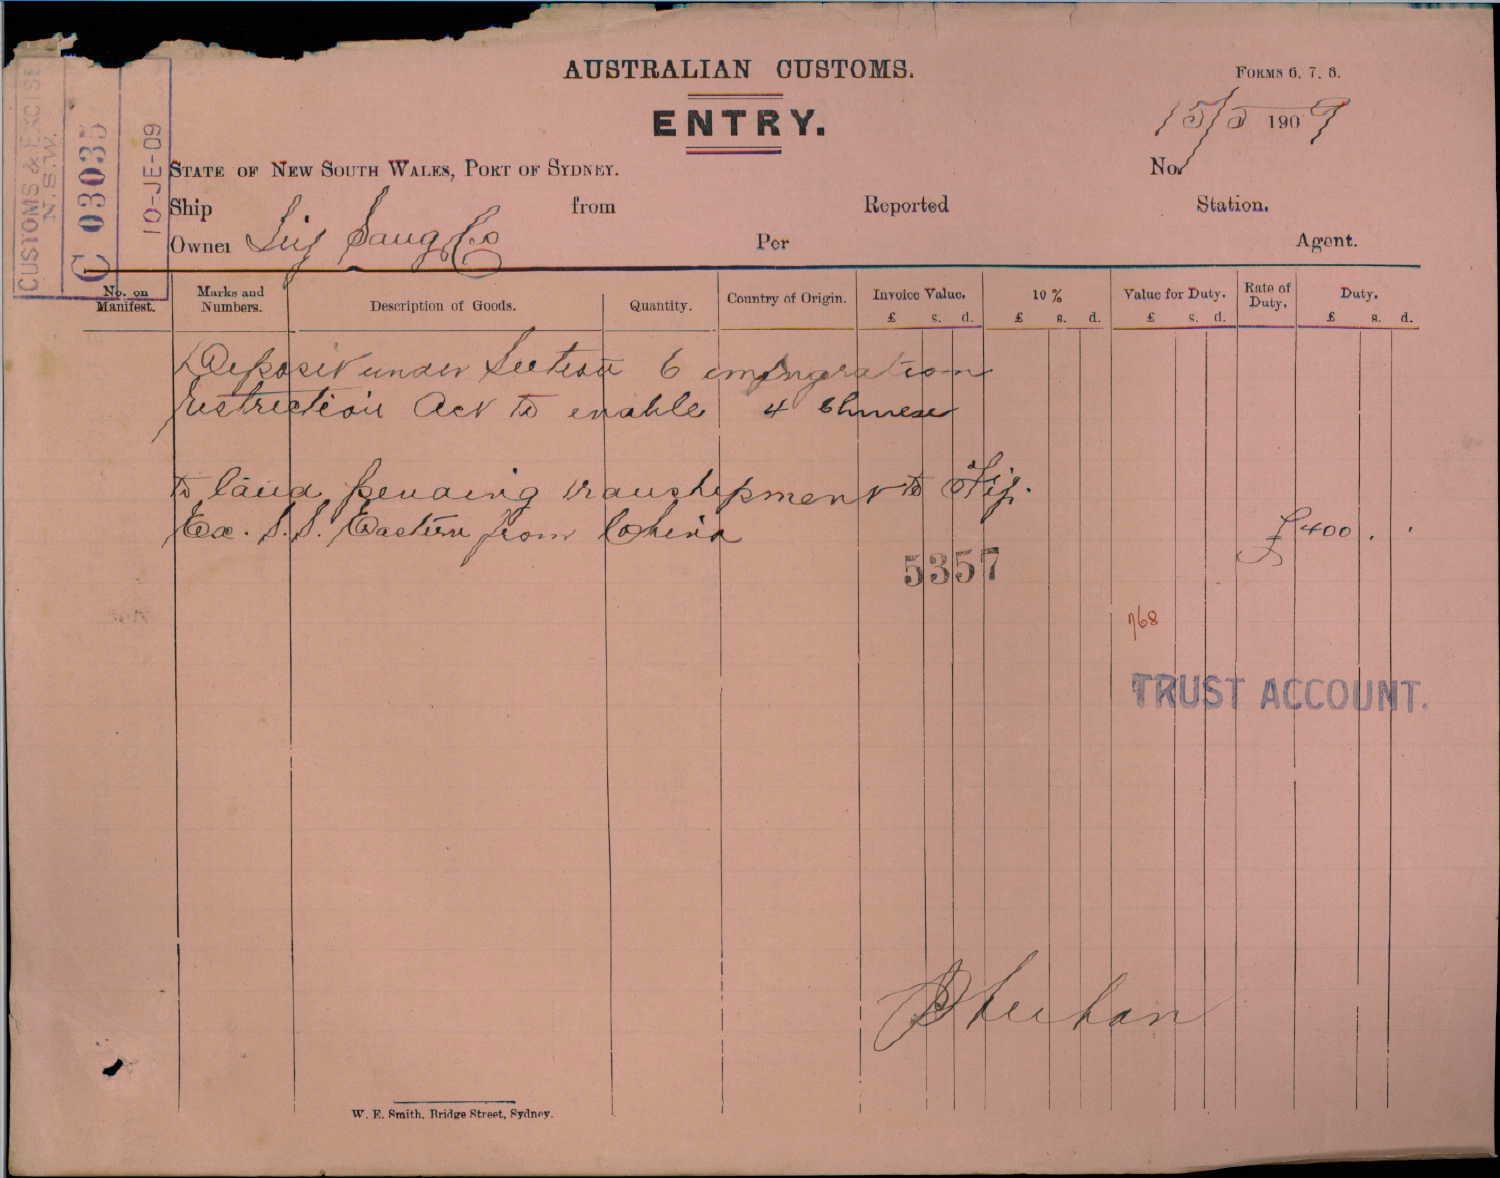 AUSTRALIAN CUSTOMS.
FORMS 6. 7. 8.
ENTRY.
15/5 1909
CUSTOMS & EXCISE
N.S.W.
C 03035
10-JE-09
STATE OF NEW SOUTH WALES, PORT OF SYDNEY.
No.
Ship from Reported Station.
Owner Sang Co Per Agent.
No. on Manifest. Marks and Numbers. Description of Goods. Quantity. Country of Origin. Invoice Value. 10 % Value for Duty. Rate of Duty. Duty.
£ s. d. £ s. d. £ s. d. £ s. d.
Deposit under Section 6 immigration
restriction Act to enable 4 Chinese
to land pending transhipment to Fiji.
Ex. S.S. Eastern from China
£400 . .
5357
768
TRUST ACCOUNT.
Sheehan
W. E. Smith, Bridge Street, Sydney.